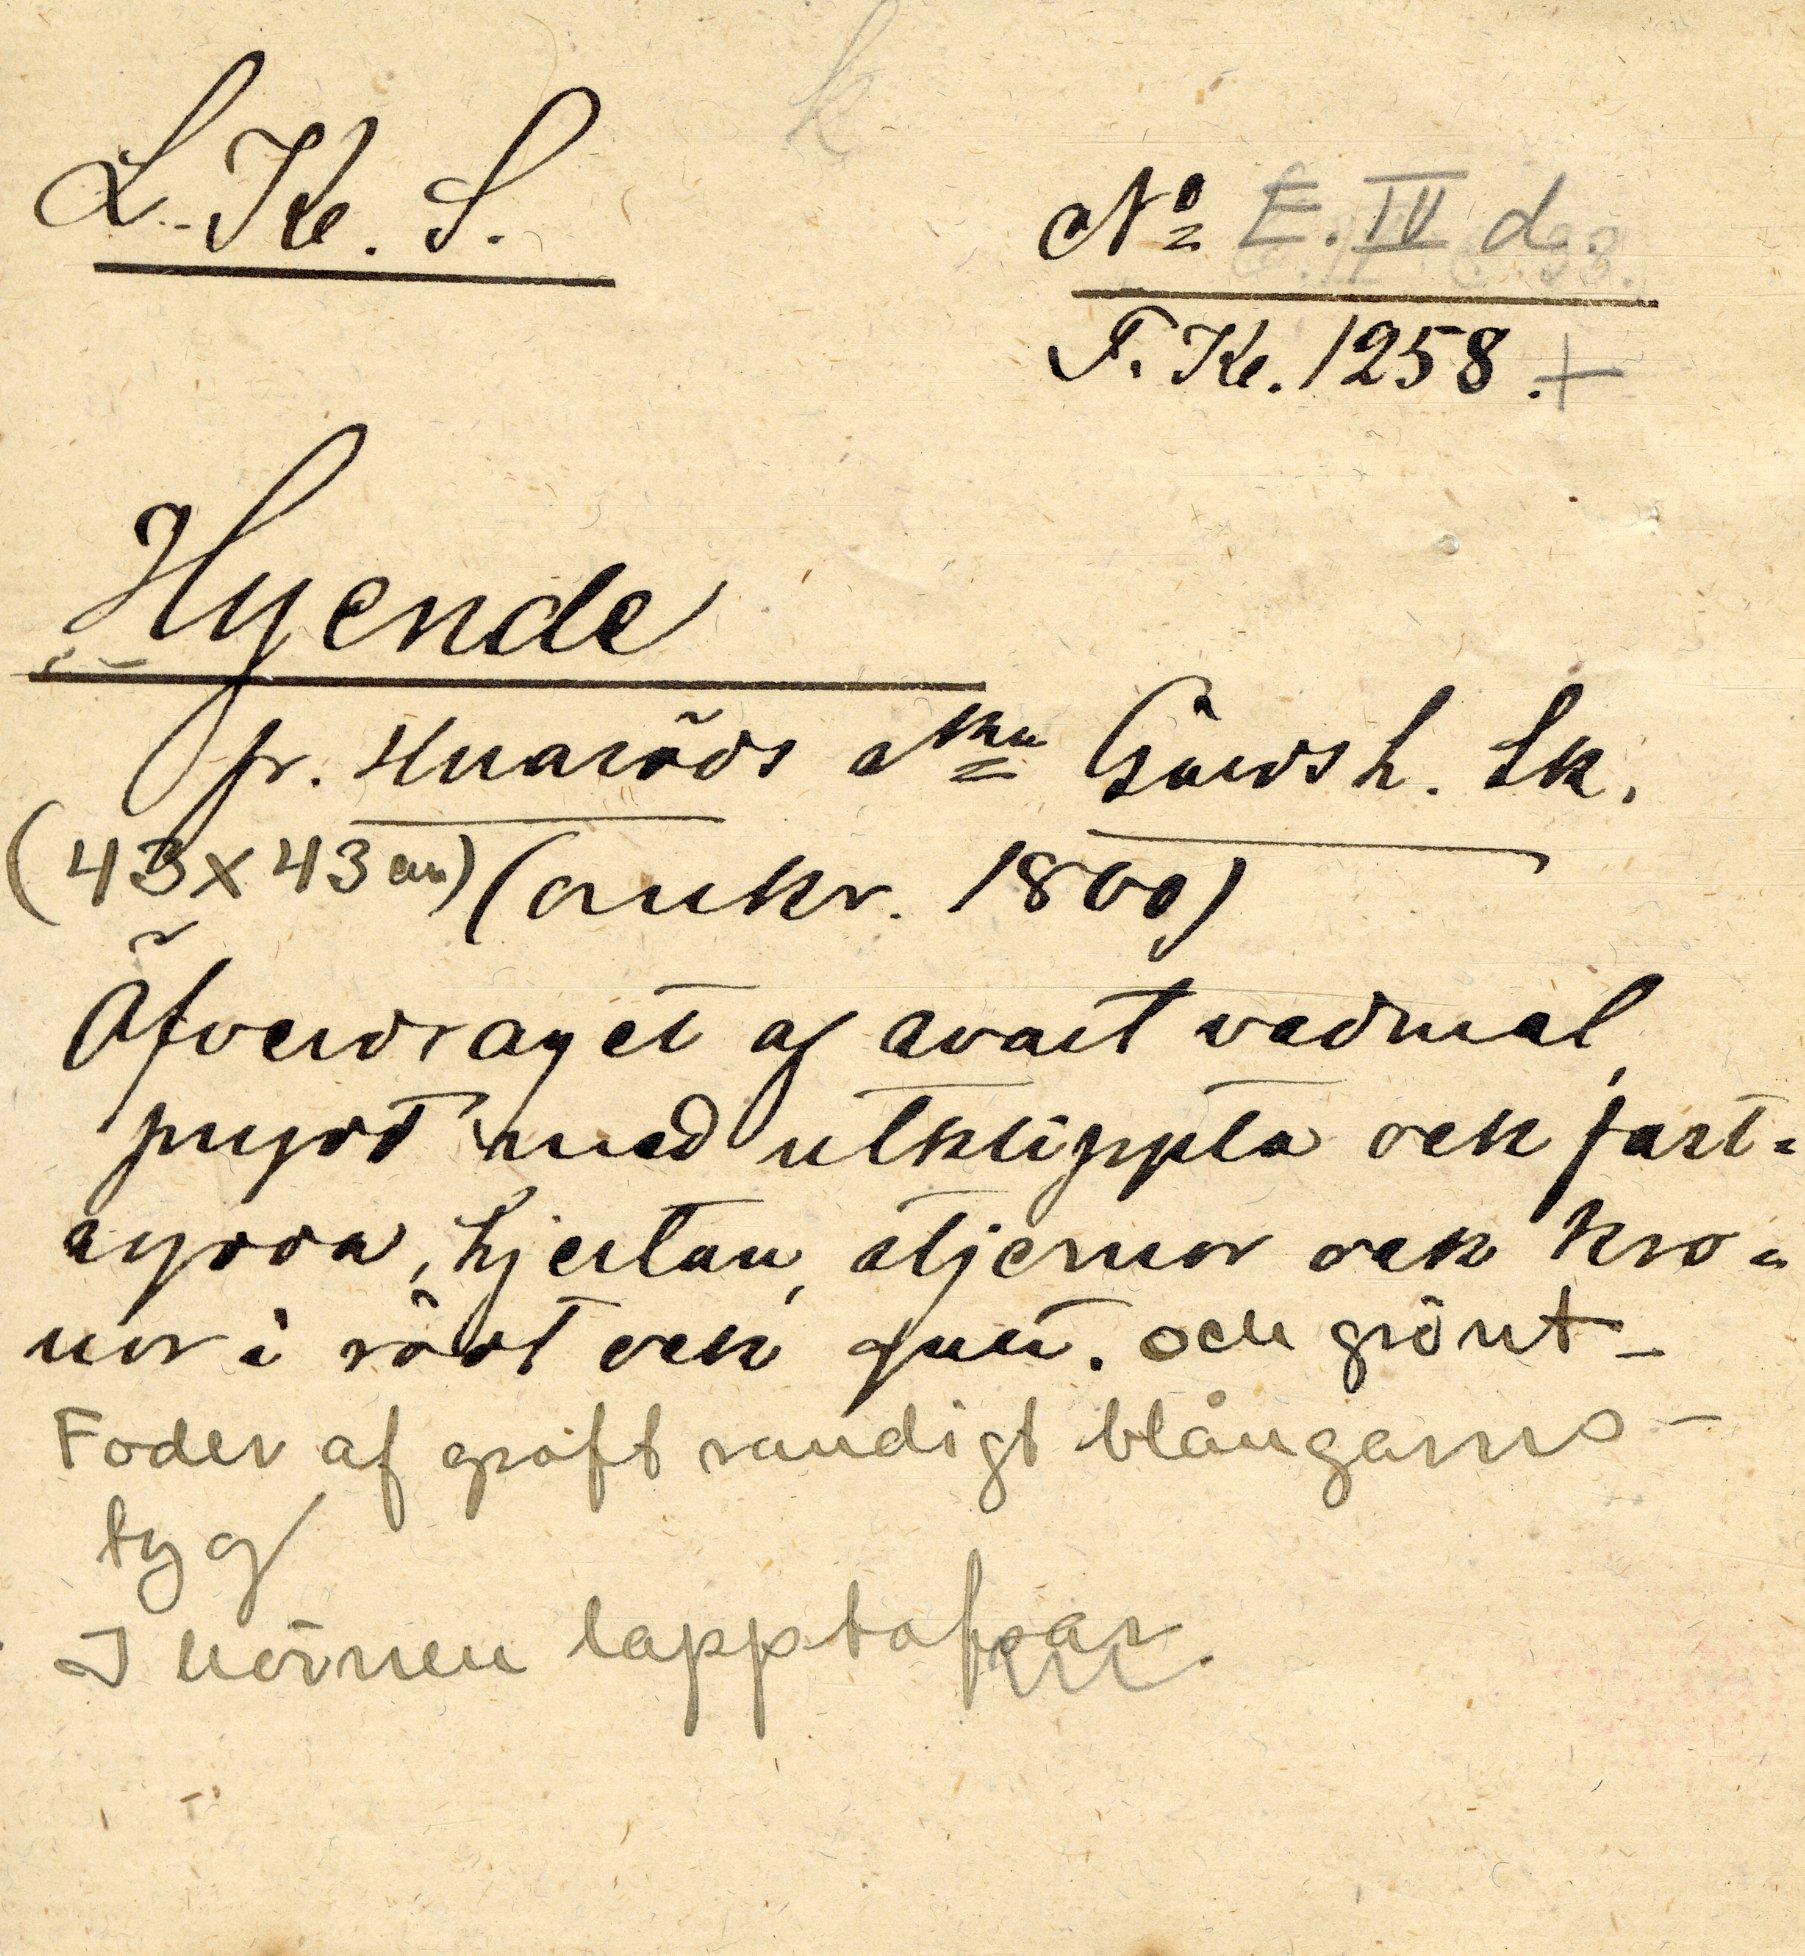 k
L. Kl. S.
No E. IV d.
F. Kl. 1258.+
Hyende
fr. Huaröds skn Gärds h. Sk.
(43 x 43 cm) (omkr. 1860)
Öfverdraget af svart vadmal,
prydt med utklippta och fast-
sydda, hjertan, stjernor och kro-
nor i rödt och gult. och grönt -
Foder af groft randigt blångarns-
tyg
I hörnen lapptofsar.